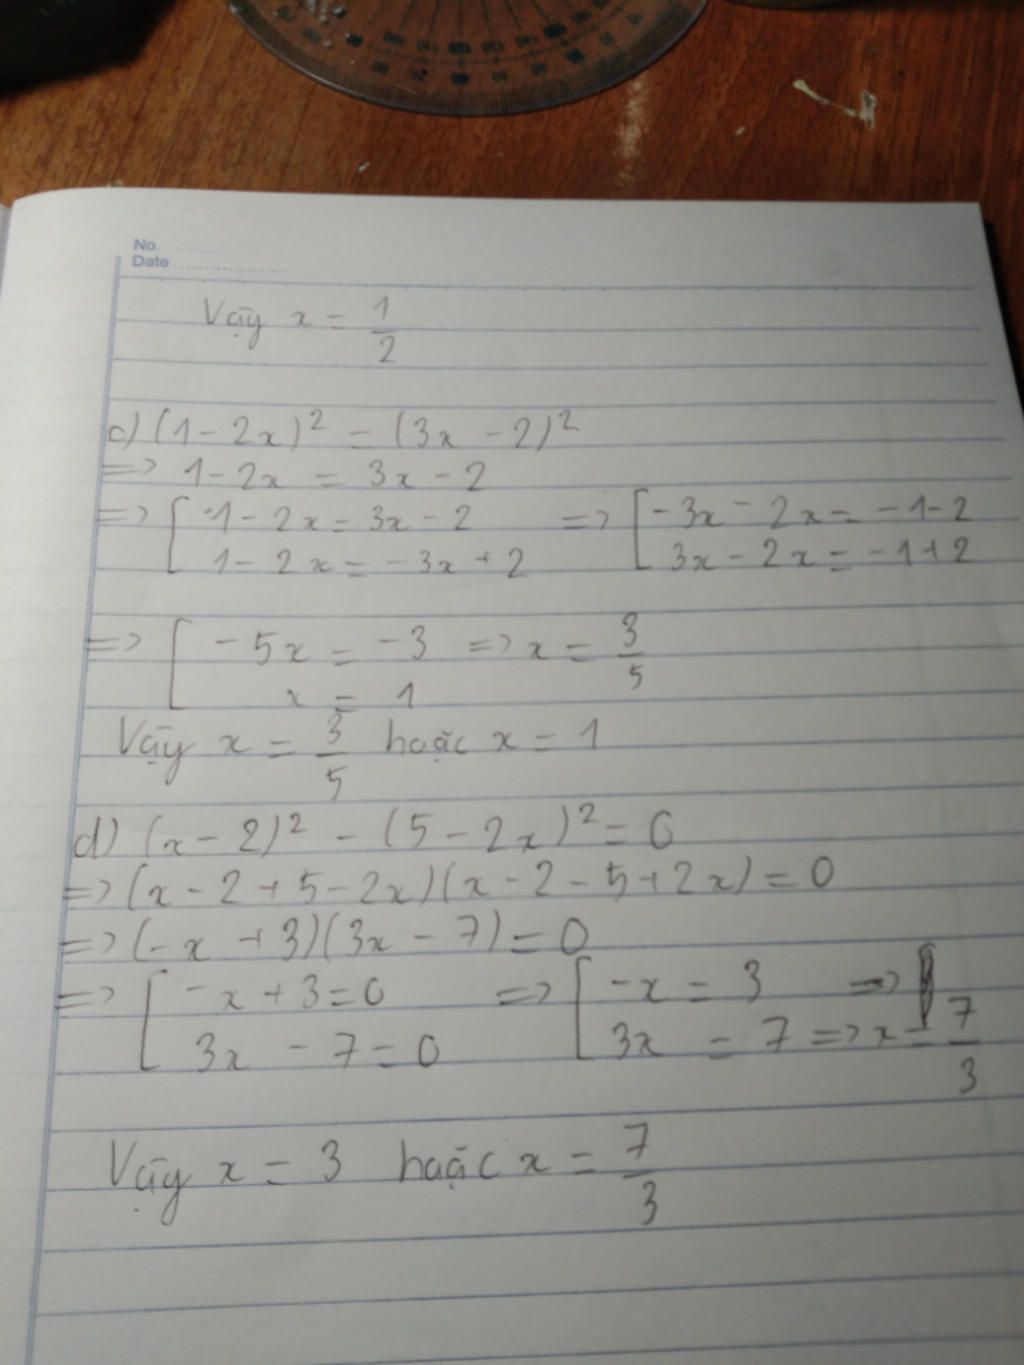 No. ..........
Date ....................
Vậy x = 1/2
c) (1 - 2x)² = (3x - 2)²
=> 1 - 2x = 3x - 2
=> [ 1 - 2x = 3x - 2 => [ -3x - 2x = -1 - 2
1 - 2x = -3x + 2 3x - 2x = -1 + 2
=> [ -5x = -3 => x = 3/5
x = 1
Vậy x = 3/5 hoặc x = 1
d) (x - 2)² - (5 - 2x)² = 0
=> (x - 2 + 5 - 2x)(x - 2 - 5 + 2x) = 0
=> (-x + 3)(3x - 7) = 0
=> [ -x + 3 = 0 => [ -x = 3 =>
3x - 7 = 0 3x = 7 => x = 7/3
Vậy x = 3 hoặc x = 7/3